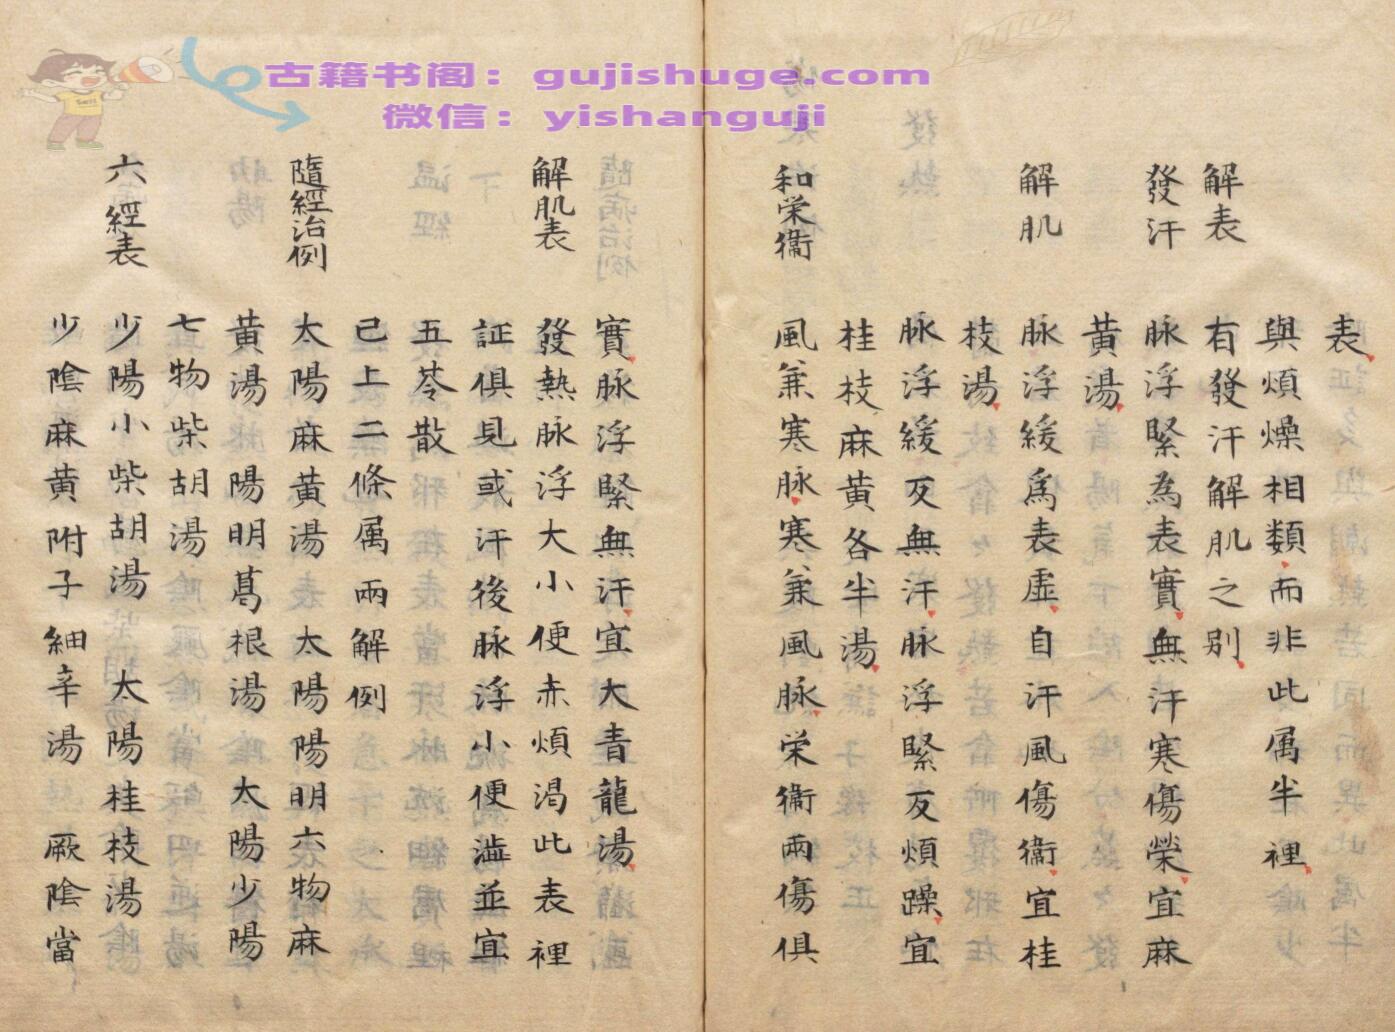 古籍书阁：gujishuge.com
微信：yishanguji
表
與煩燥相類而非此属半裡
解表
有發汗解肌之别
發汗
脉浮緊為表實無汗寒傷榮宜麻
黄湯
解肌
脉浮緩爲表虚自汗風傷衞宜桂
枝湯
脉浮緩反無汗脉浮緊反煩躁宜
桂枝麻黄各半湯
和栄衞
風兼寒脉寒兼風脉栄衞兩傷俱
實脉浮緊無汗宜大青龍湯
解肌表
發熱脉浮大小便赤煩渇此表裡
証俱見或汗後脉浮小便澁並宜
五苓散
已上二條属兩解例
隨經治例
太陽麻黄湯 太陽陽明六物麻
黄湯陽明葛根湯 太陽少陽
七物柴胡湯
六經表
少陽小柴胡湯 太陽桂枝湯
少陰麻黄附子細辛湯 厥陰當